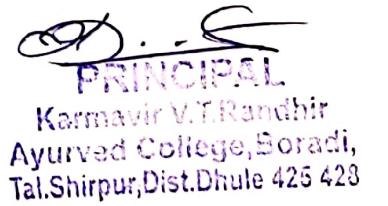 PRINCIPAL
Karmavir V.T.Randhir
Ayurved College,Boradi,
Tal.Shirpur,Dist.Dhule 425 428